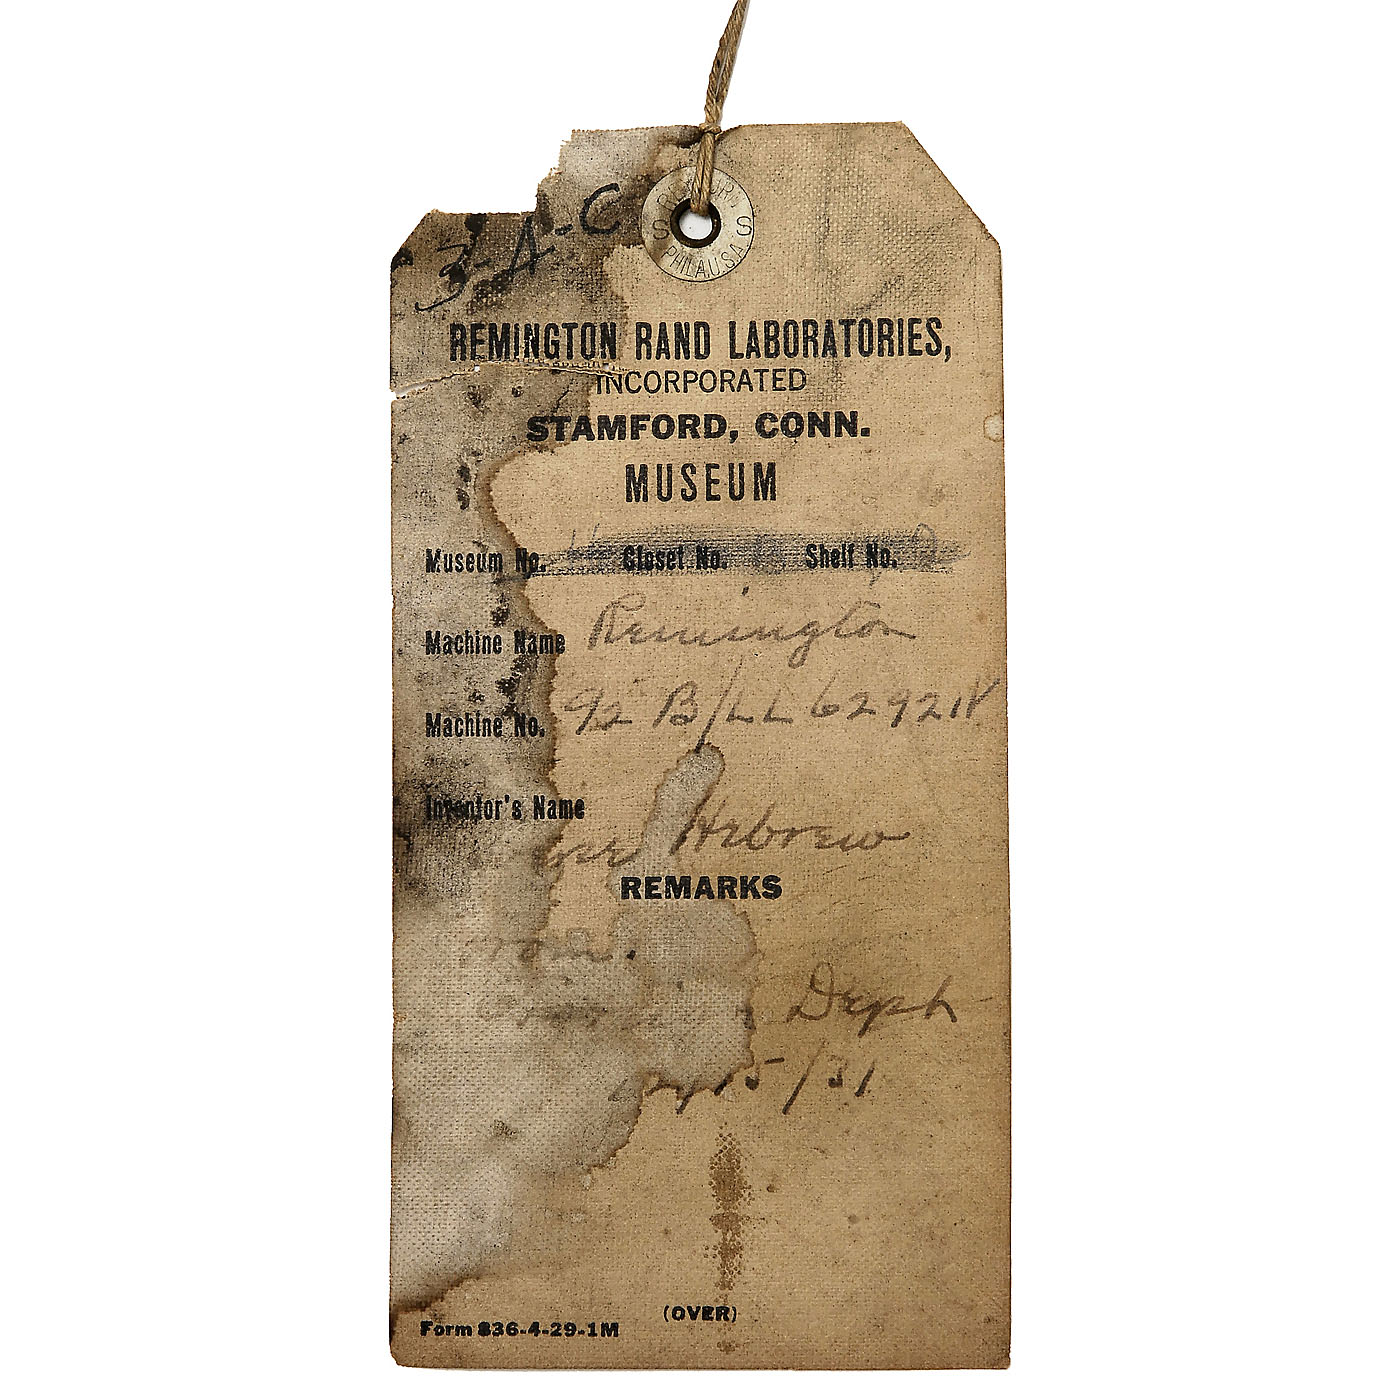 3-A-C
DENNISON'S
PHILA. U.S.A.
REMINGTON RAND LABORATORIES,
INCORPORATED
STAMFORD, CONN.
MUSEUM
Museum No. Closet No. Shelf No.
Machine Name Remington
Machine No. 92 B/LL 62921
Inventor's Name
Hebrew
REMARKS
Deph
15/31
(OVER)
Form 836-4-29-1M